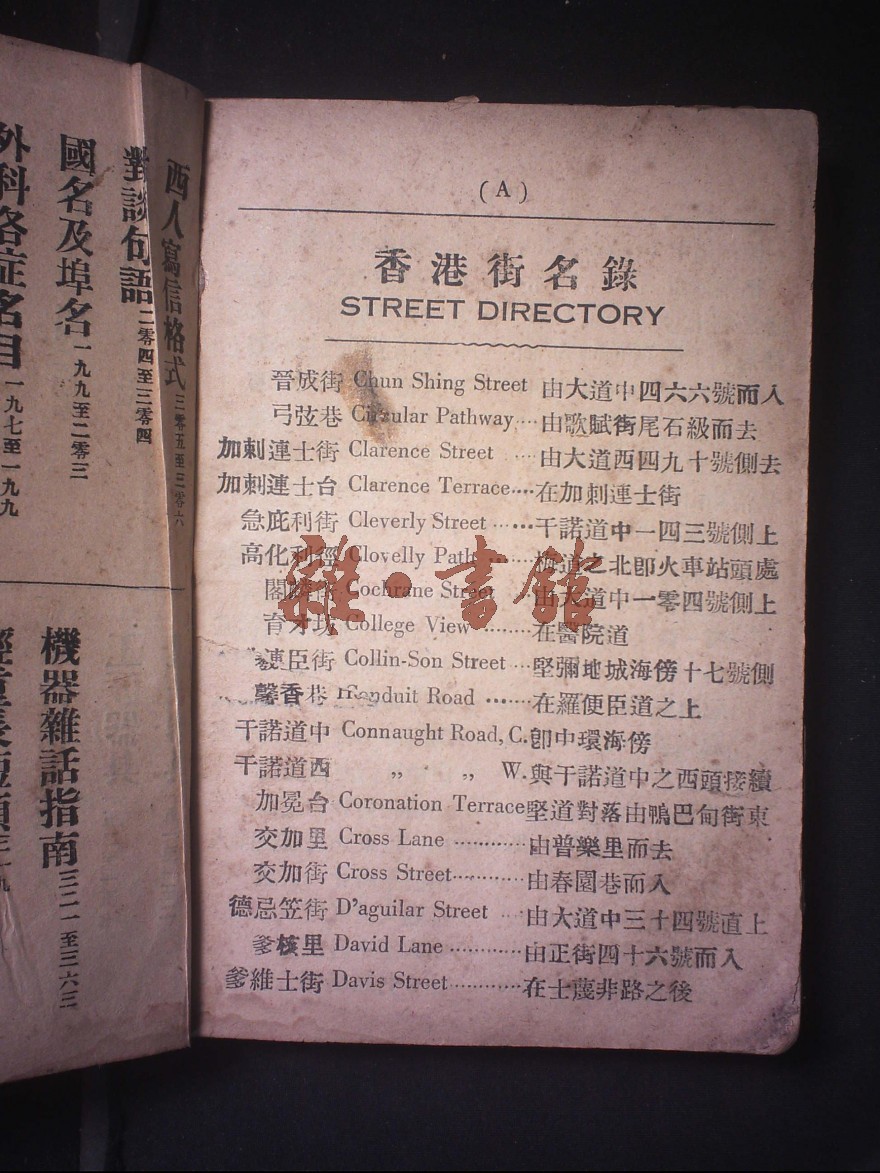 (A)
香港街名錄
STREET DIRECTORY
晉成街 Chun Shing Street 由大道中四六六號而入
弓弦巷 Circular Pathway .... 由歌賦街尾石級而去
加刺連士街 Clarence Street .... 由大道西四九十號側去
加刺連士台 Clarence Terrace .... 在加刺連士街
急庇利街 Cleverly Street ...... 干諾道中一四三號側上
高化利徑 Clovelly Path ........ 梅道之北卽火車站頭處
閣麟街 Cochrane Street 由大道中一零四號側上
育才坊 College View ........ 在醫院道
臣街 Collin-Son Street ... 堅彌地城海傍十七號側
馨香巷 Conduit Road ...... 在羅便臣道之上
干諾道中 Connaught Road, C. 卽中環海傍
干諾道西 „ „ W. 與干諾道中之西頭接續
加冕台 Coronation Terrace 堅道對落由鴨巴甸街東
交加里 Cross Lane ............ 由普樂里而去
交加街 Cross Street ............ 由春園巷而入
德忌笠街 D'aguilar Street .... 由大道中三十四號直上
爹核里 David Lane ............ 由正街四十六號而入
爹維士街 Davis Street ............ 在士蔑非路之後
西人寫信格式 三零五至三零六
對談句語 二零四至三零四
國名及埠名 一九九至二零三
外科各症名目 一九七至一九九
機器雜話指南 三二一至三六三
雜·書館